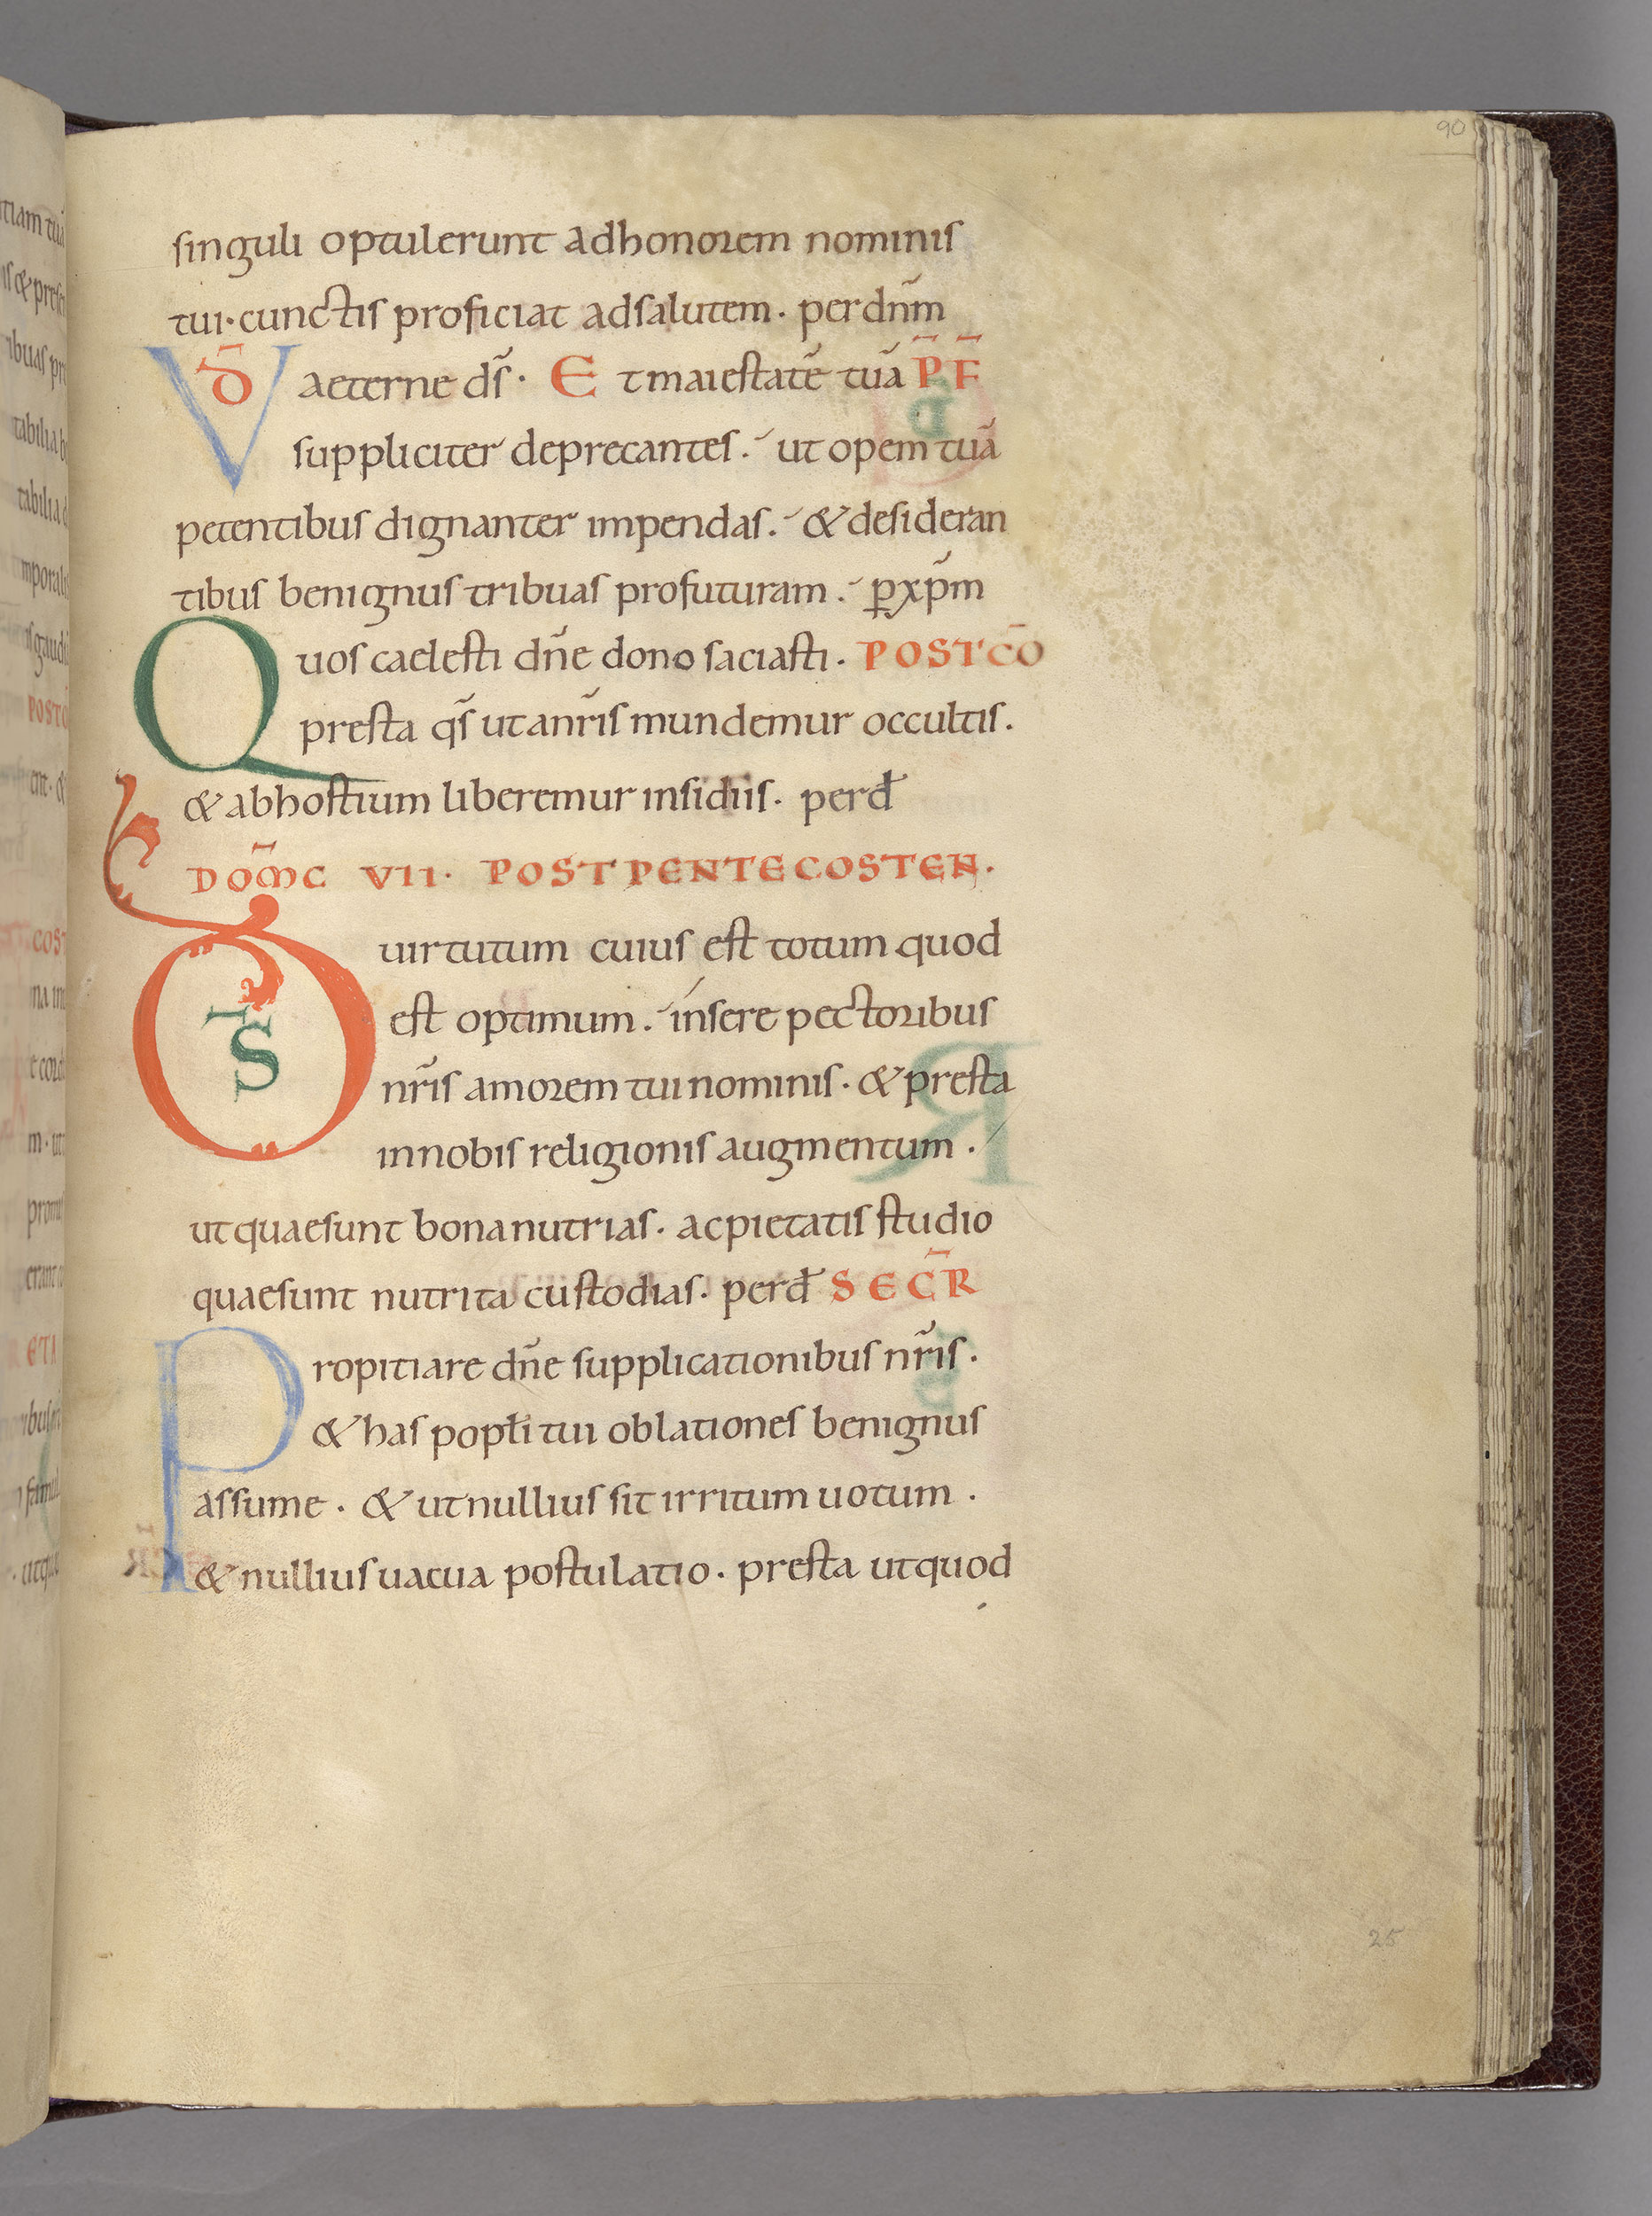 90
singuli optulerunt adhonorem nominis
tui· cunctis proficiat adsalutem · perdnm̃
VD̄ aeterne ds̃ · Et maiestatē tuā P̄F̄
suppliciter deprecantes ·́ ut opem tuā
petentibus dignanter impendas ·́ & desideran
tibus benignus tribuas profuturam ·́ ꝑxp̃m
Quos caelesti dñe dono saciasti · POSTCŌ
presta qs̃ ut anr̃is mundemur occultis ·
& abhostium liberemur insidiis · perđ
DOM̄C VII · POST PENTECOSTEN ·
D̄S uirtutum cuius est totum quod
est optimum ·́ insere pectoribus
nr̃is amorem tui nominis · & presta
innobis religionis augmentum ·
ut quaesunt bona nutrias · ac pietatis studio
quaesunt nutrita custodias · perđ SECR̄
Propitiare dñe supplicationibus nr̃is ·
& has popłi tui oblationes benignus
assume · & ut nullius sit irritum uotum ·
& nullius uacua postulatio · presta ut quod
25